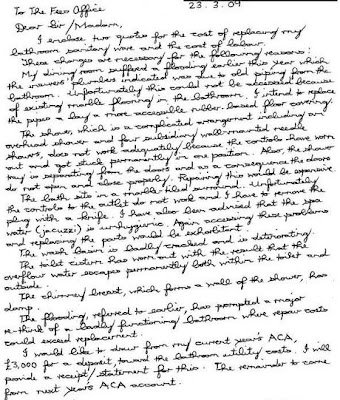 To The Fees Office
23.3.09
Dear Sir/Madam,
I enclose two quotes for the cost of replacing my
bathroom sanitary ware and the cost of labour.
These changes are necessary for the following reasons:
My dining room suffered a flooding earlier this year which
the insurers' plumbers indicated was due to old piping from the
bathroom. Unfortunately this could not be accessed because
of existing marble flooring in the bathroom. I intend to replace
the pipes & lay a more accessible rubber based floor covering.
The shower, which is a complicated arrangement including an
overhead shower and four subsidiary wall-mounted needle
showers, does not work adequately because the controls have worn
out and get stuck permanently in one position. Also, the shower
tray is separating from the doors and as a consequence the doors
do not open and close properly. Repairing this would be expensive
The bath sits in a marble tiled surround. Unfortunately
the controls to the outlet do not work and I have to remove the
plug with a knife. I have also been advised that the spa
water (jacuzzi) is unhygienic. Again accessing these problems
and replacing the parts would be exhorbitant.
The wash basin is badly cracked and is deteriorating.
The toilet cistern has worn out with the result that the
overflow water escapes permanently both within the toilet and
outside.
The chimney breast, which forms a wall of the shower, has
damp.
The flooding, referred to earlier, has prompted a major
re-think of a badly functioning bathroom where repair costs
could exceed replacement.
I would like to draw from my current year's ACA,
£3,000 for a deposit, toward the bathroom utility costs. I will
provide a receipt/statement for this. The remainder to come
from next year's ACA account.